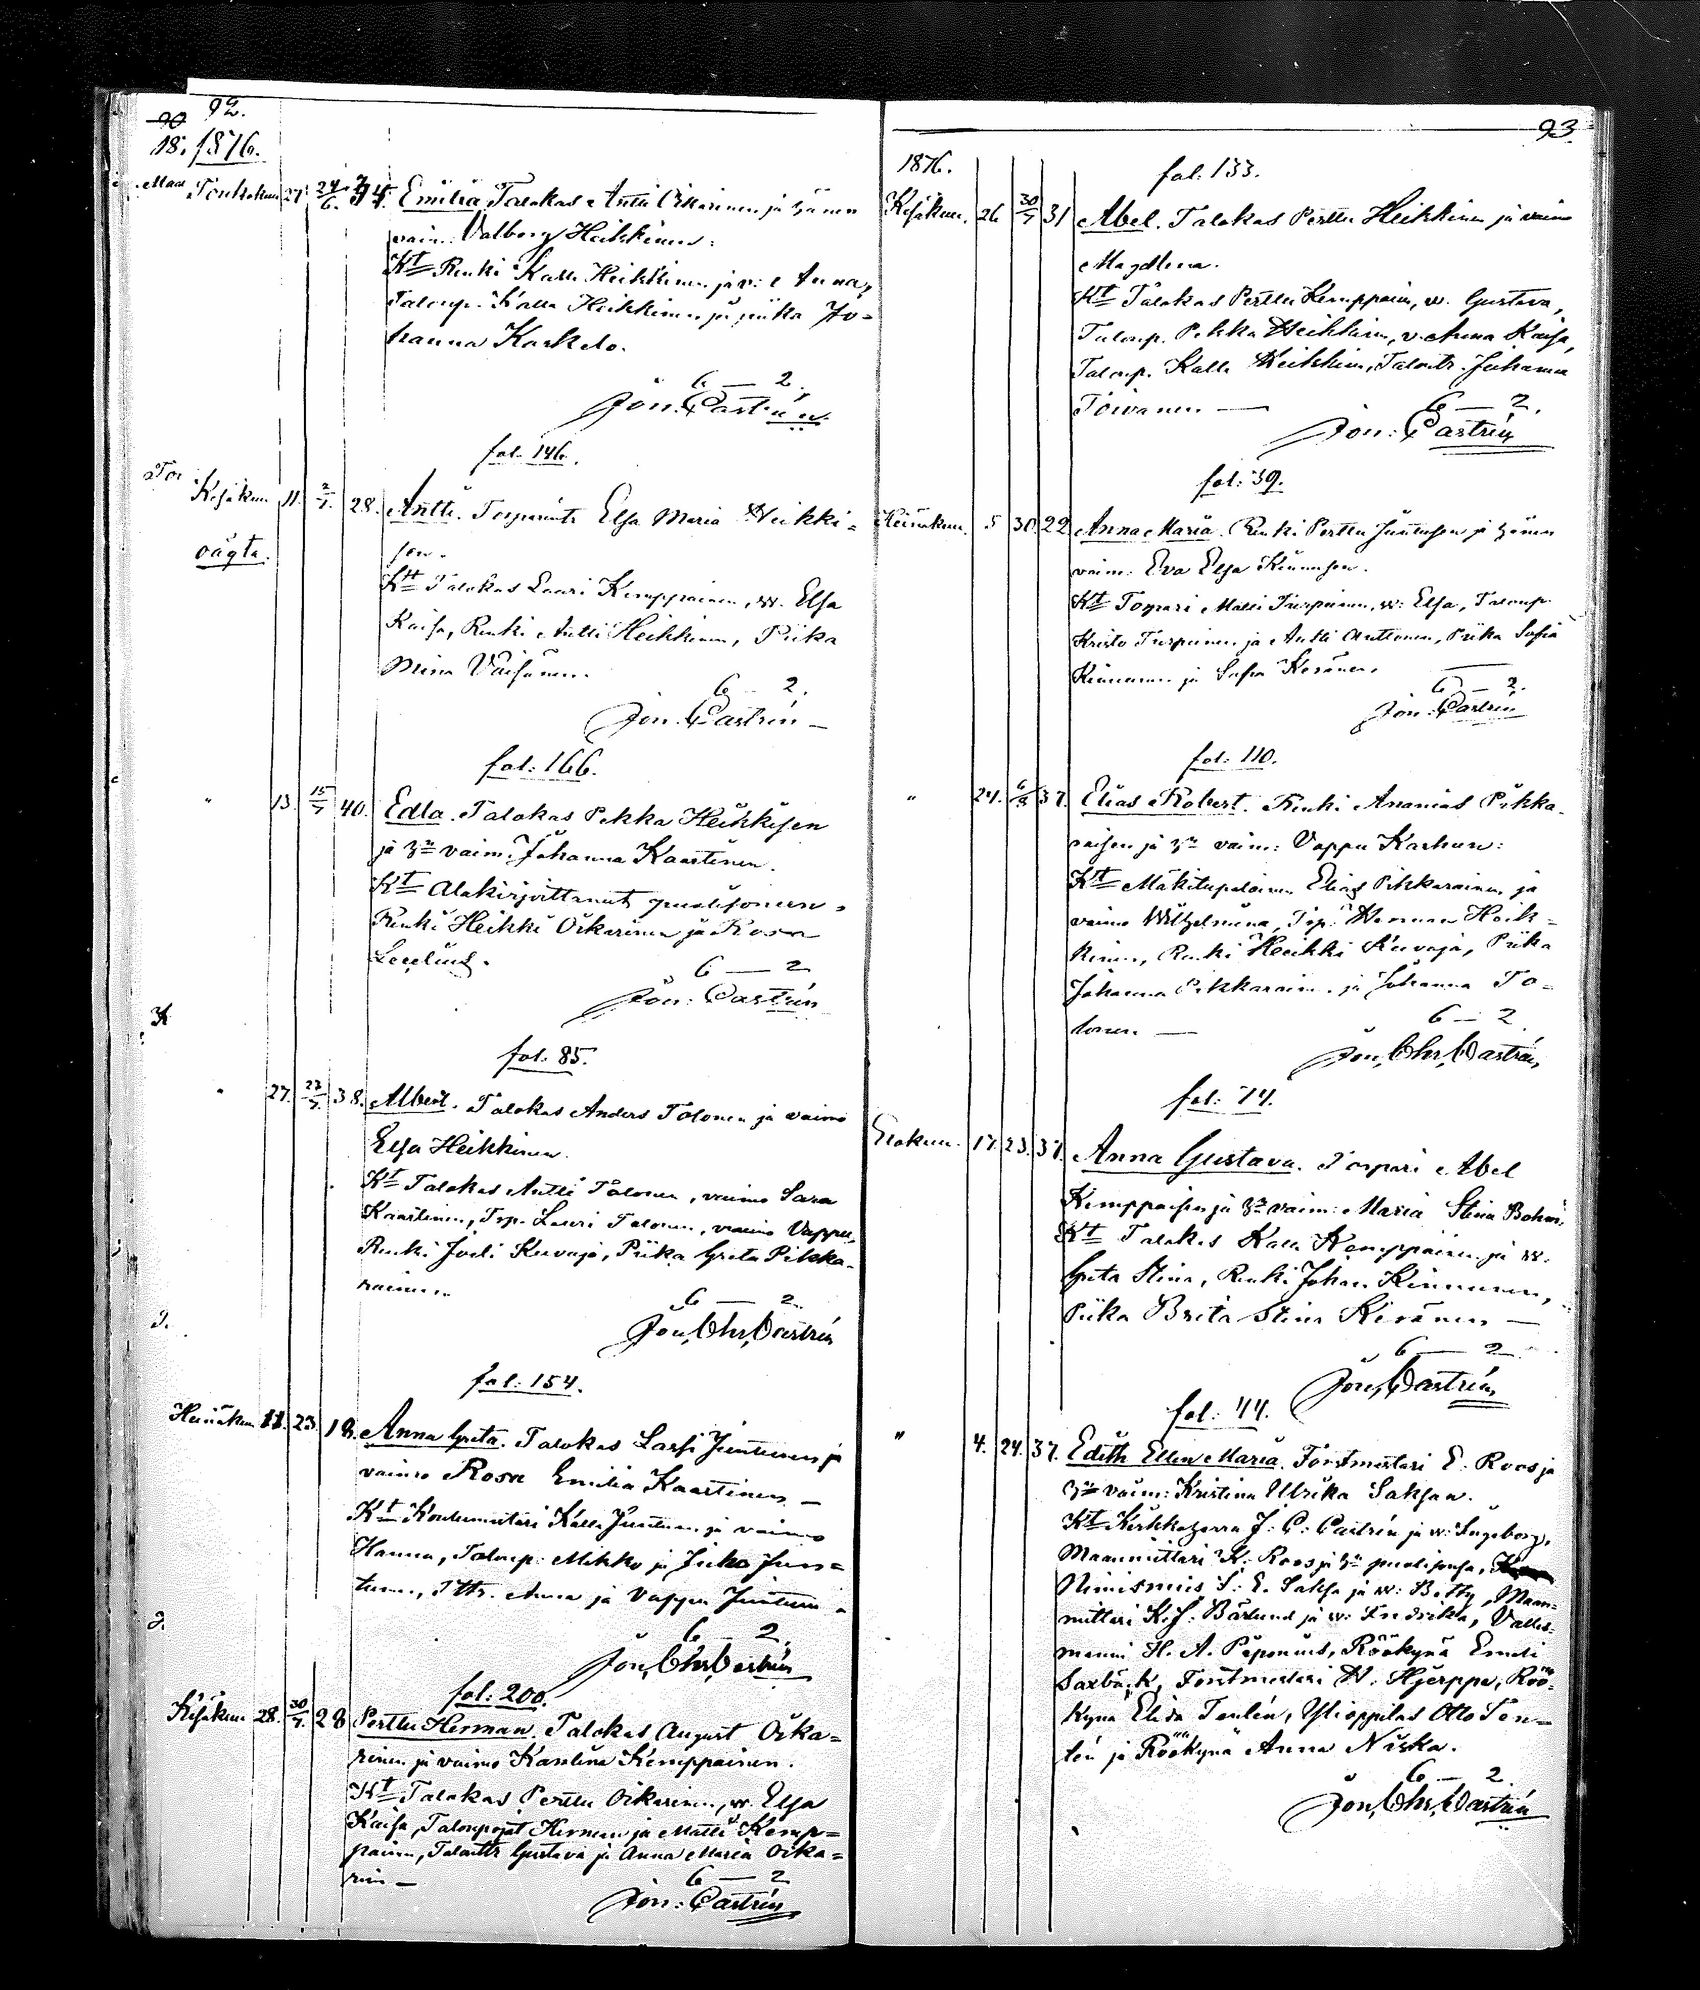 92.
90
18. 1876.
Toukokuu 27 24/6. 34. Emilia. Talokas Antti Oikarinen ja hänen
vaim. Valborg Heikkinen.
Kt Renki Kalle Heikkinen ja v: Anna,
Talonp. Kalle Heikkinen ja piika Jo=
hanna Karkelo.
6 — 2.
Joh. Castrén
fol. 146.
Kesäkuu 11. 2/7. 28. Antti. Torparintr Elsa Maria Heikki=
sen.
oägta.
Ktt Talokas Lauri Kemppainen, w. Elsa
Kaisa, Renki Antti Heikkinen, Piika
Mina Väisänen.
6 2.
Joh. Castrén —
fol: 166.
" 13. 15/7 40. Edla. Talokas Pekka Heikkisen
ja hn vaim. Johanna Kaartinen.
Kt Alakirjoittanut puolisoneen,
Renki Heikki Oikarinen ja Rosa
6 — 2
Joh: Castrén
fol: 85.
" 27. 23/7. 38. Albert. Talokas Anders Tolonen ja vaimo
Elsa Heikkinen.
Kt Talokas Antti Tolonen, vaimo Sara
Kaartinen, Trp. Lauri Tolonen, vaimo Vappu,
Renki Joeli Keväjä, Piika Greta Pikka-
rainen.
6 — 2.
Joh, Chr, Castrén
fol: 154.
Heinäkuu 11. 23. 18. Anna Greta. Talokas Lassi Juntunen ja
vaimo Rosa Emilia Kaartinen —
Kt Koulumestari Kalle Juntunen ja vaimo
Hanna, Talonp: Mikko ja Juho Jun=
tunen, Tttr. Anna ja Vappu Juntunen
6 2.
Joh, Chr, Castrén
fol: 200.
Kesäkuu 28. 30/7. 28 Perttu Herman. Talokas August Oika=
rinen ja vaimo Karolina Kemppainen.
Kt Talokas Perttu Oikarinen, w. Elsa
Kaisa, Talonpojat Herman ja Matti Kemp=
painen, Talonttr Gustava ja Anna Maria Oika=
rin —
6 — 2
Joh: Castrén
93.
1876.
fol: 133.
Kesäkuu. 26 30/7 31 Abel. Talokas Perttu Heikkinen ja vaimo
Magdlena.
Kt Talokas Perttu Kemppainen, w. Gustava,
Talonp. Pekka Heikkinen, v. Anna Kaisa,
Talonp. Kalle Heikkinen, Talontr. Johanna
Toivanen —
6 — 2.
Joh: Castrén
fol: 39.
Heinäkuu. 5 30. 22 Anna Maria. Renki Perttu Juntusen ja hänen
vaim. Eva Elsa Kinnusen.
Kt Torpari Matti Turpeinen, w: Elsa, Talonp
Kristo Turpeinen ja Antti Anttonen, Piika Sofia
Kinnunen ja Sofia Keränen.
6 — 2.
Joh: Castrén
fol: 110.
" 24. 6/8 37. Elias Robert. Renki Ananias Pikka
raisen ja hn vaim: Vappu Karhun:
Kt Mäkitupalainen Elias Pikkarainen ja
vaimo Wilhelmina, Trp. Herman Heik=
kinen, Renki Heikki Keväjä, Piika
Johanna Pikkarain. ja Johanna To=
lonen —
6 — 2
Joh, Chr, Castrén,
fol: 74.
Elokuu. 17. 23. 37. Anna Gustava. Torpari Abel
Kemppaisen ja hn vaim: Maria Stina Bohm,
Kt Talokas Kalle Kemppainen ja w.
Greta Stina, Renki Johan Kinnunen,
Piika Brita Stina Keränen —
6 — 2
Joh, Castrén
fol: 44.
" 4. 24. 37. Edith Ellen Maria. Forstmestari E. Roos ja
hn vaim: Kristina Ulrika Saksan.
Kt Kirkkoherra J: C: Castrén ja w: Ingeborg,
Maanmittari K: Roos ja hn puolisonsa,
Nimismies S: E. Saksa ja w: Betty, Maan=
mittari K. J. Bärlund ja w: Fredrika, Valles=
manni H. A. Peponius, Röökynä Emeli
Saxbäck, Forstmestari W. Hjerppe, Röö=
kynä Elida Tenlén, Ylioppilas Otto Ten=
lén ja Röökynä Anna Niska.
6 — 2.
Joh, Chr, Castrén